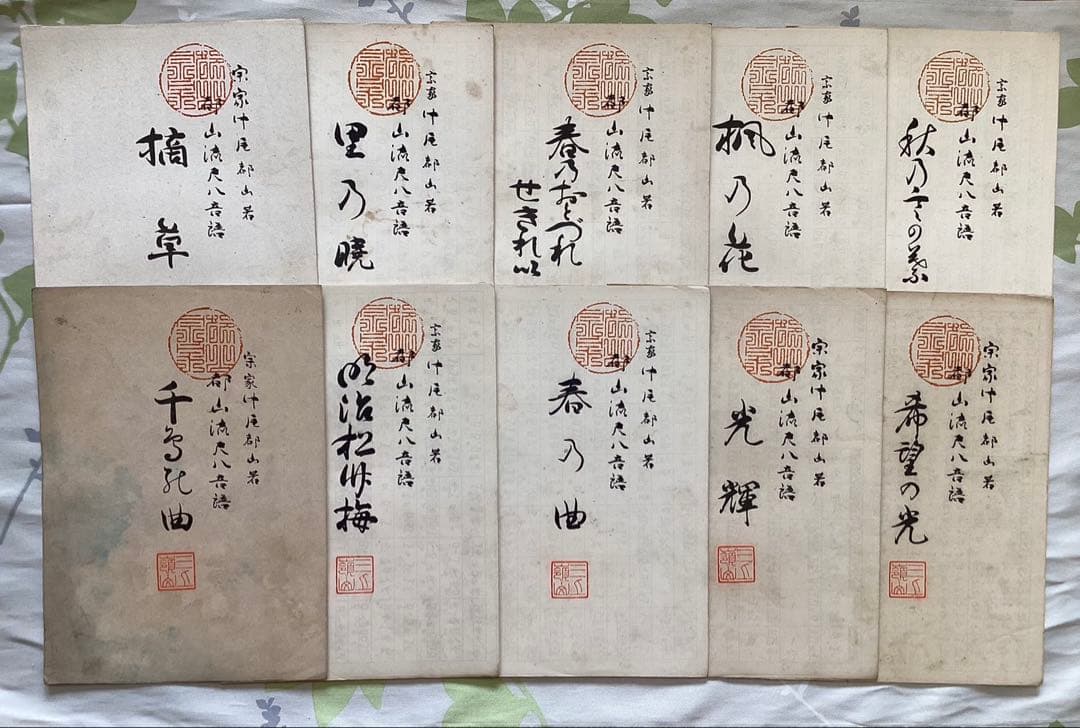 宗家 中尾都山著
都山流尺八音譜
秋乃言の葉
宗家 中尾都山著
都山流尺八音譜
楓乃花
宗家 中尾都山著
都山流尺八音譜
春乃おとづれ
せきれい
宗家 中尾都山著
都山流尺八音譜
里乃曉
宗家 中尾都山著
都山流尺八音譜
摘草
宗家 中尾都山著
都山流尺八音譜
希望の光
宗家 中尾都山著
都山流尺八音譜
光輝
宗家 中尾都山著
都山流尺八音譜
春乃曲
宗家 中尾都山著
都山流尺八音譜
明治松竹梅
宗家 中尾都山著
都山流尺八音譜
千鳥の曲